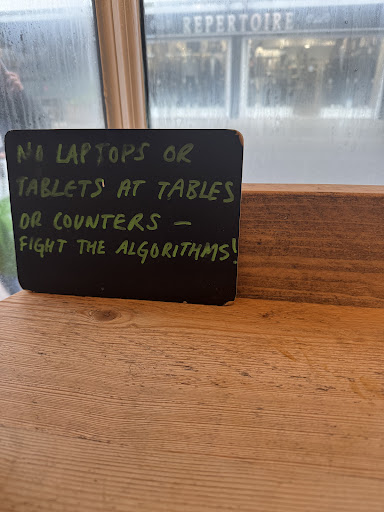 REPERTOIRE
NO LAPTOPS OR
TABLETS AT TABLES
OR COUNTERS —
FIGHT THE ALGORITHMS!